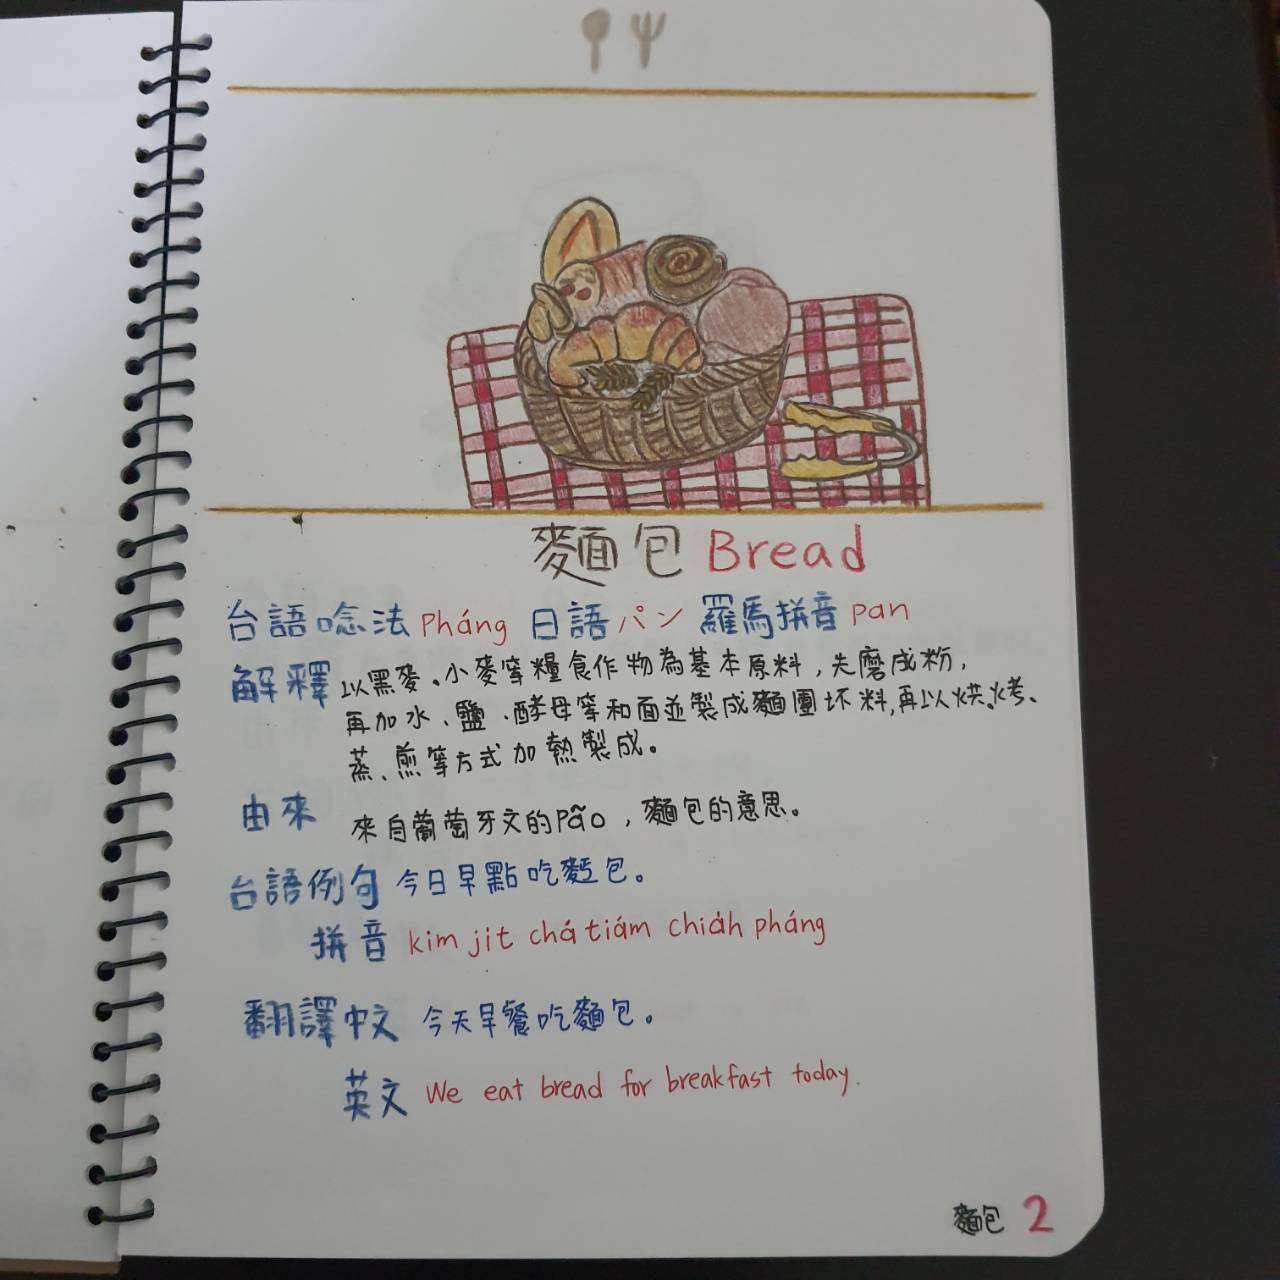 麵包 Bread
台語唸法 Pháng 日語 パン 羅馬拼音 pan
解釋 以黑麥、小麥等糧食作物為基本原料,先磨成粉,
再加水、鹽、酵母等和面並製成麵團坯料,再以烘、烤、
蒸、煎等方式加熱製成。
由來 來自葡萄牙文的pão,麵包的意思。
台語例句 今日早點吃麵包。
拼音 kim jit chá tiám chia̍h pháng
翻譯中文 今天早餐吃麵包。
英文 We eat bread for breakfast today.
麵包 2